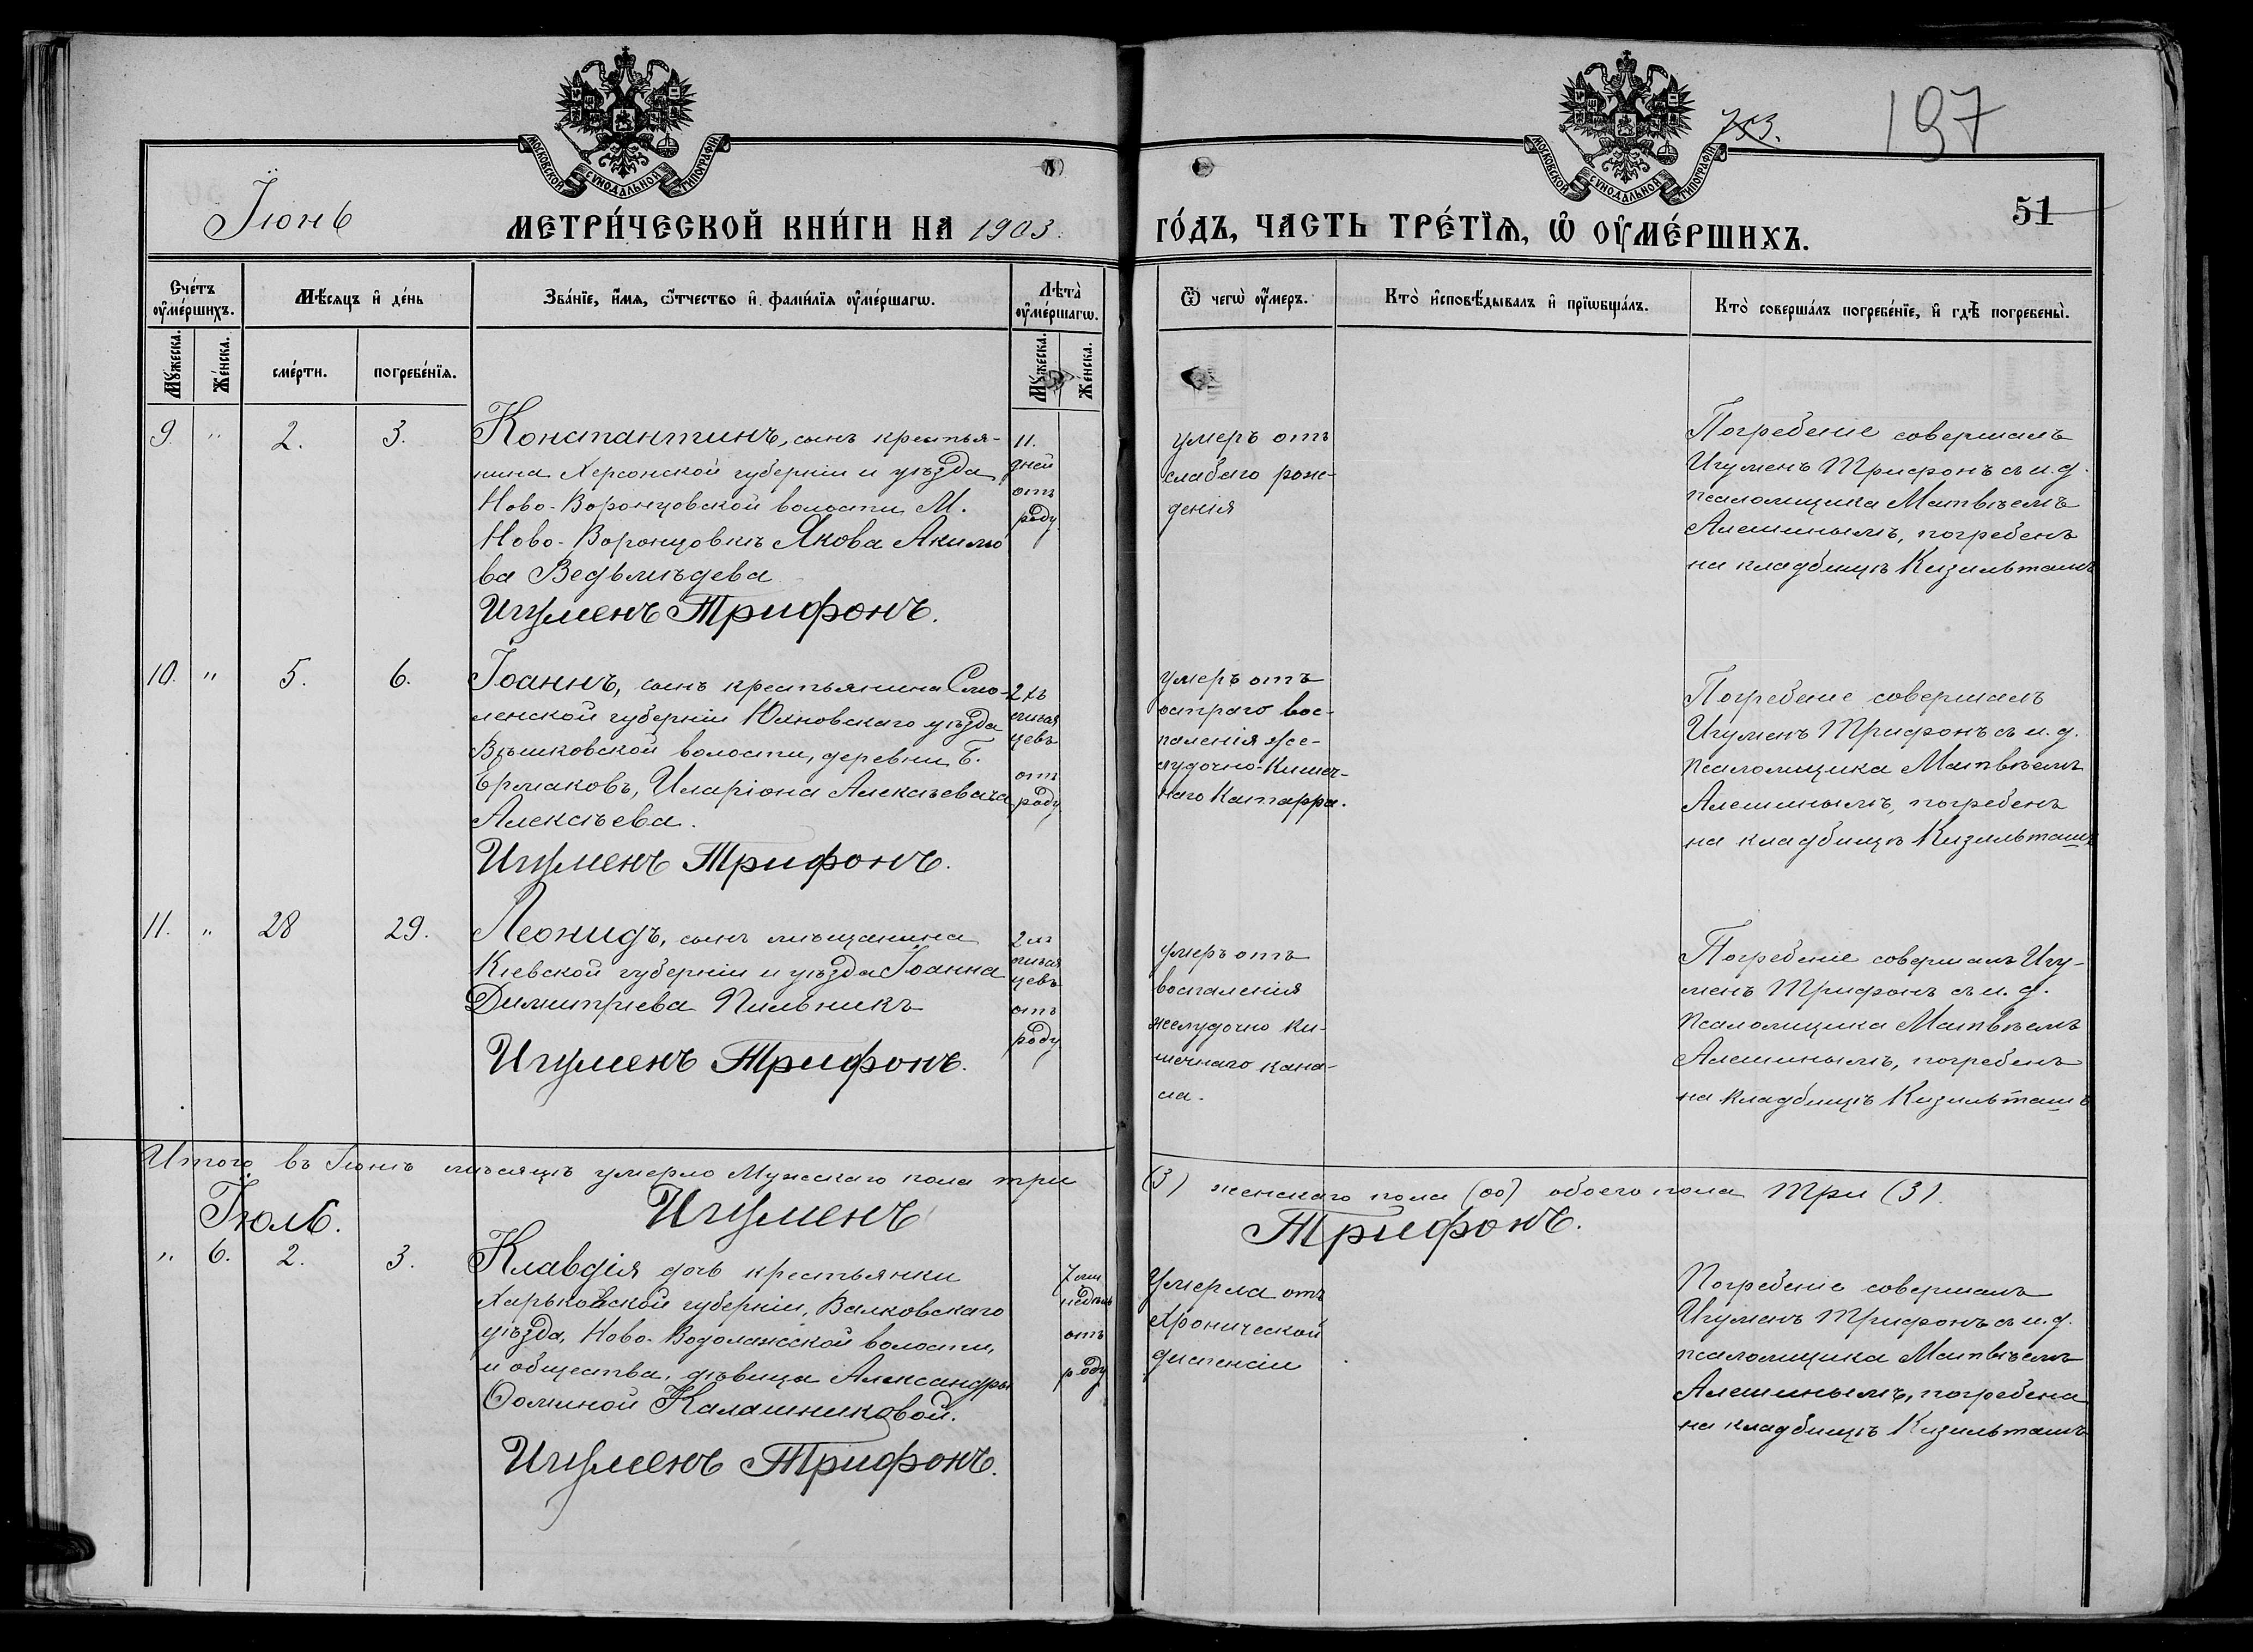 МОСКОВСКОЙ СѴНОДАЛЬНОЙ ТИПОГРАФІИ
МОСКОВСКОЙ СѴНОДАЛЬНОЙ ТИПОГРАФІИ
753.
197
51
Іюнь
МЕТРИ́ЧЕСКОЙ КНИ́ГИ НА 1903.
ГО́ДЪ, ЧАСТЬ ТРЕ́ТЇѦ, Ѡ҆ ОУ҆МЕ́РШИХЪ.
Сче́тъ оу҆ме́ршихъ.
Мѣ́сяцъ и҆ де́нь
Зва́нїе, и҆́мя, ѻ҆́тчество и҆ фами́лїя оу҆ме́ршагѡ.
Лѣта̀ оу҆ме́ршагѡ.
Ѿ чегѡ̀ оу҆́меръ.
Кто̀ и҆сповѣ́дывалъ и҆ прїѡбща́лъ.
Кто̀ соверша́лъ погребе́нїе, и҆ гдѣ̀ погребены̀.
Му́жеска.
Же́нска.
сме́рти.
погребе́нїя.
Му́жеска.
Же́нска.
9. " 2. 3.
Константинъ, сынъ крестья-
нина Херсонской губерніи и уѣзда
Ново-Воронцовской волости М.
Ново-Воронцовкѣ Якова Акимо
ва Ведьмѣдева
Игуменъ Трифонъ.
11.
дней
отъ
роду
умеръ отъ
слабаго рож-
денія
Погребеніе совершалъ
Игуменъ Трифонъ съ и.д.
псаломщика Матвѣемъ
Алешинымъ, погребенъ
на кладбищѣ Кизильташъ
10. " 5. 6.
Іоаннъ, сынъ крестьянина Смо-
ленской губерніи Юхновскаго уѣзда
волости, деревни Б.
Ермаковъ, Иларіона Алексѣевича
Алексѣева.
Игуменъ Трифонъ.
2 хъ
мѣся
цевъ
отъ
роду
умеръ отъ
остраго вос-
паленія же-
лудочно-кишеч-
наго катарра.
Погребеніе совершалъ
Игуменъ Трифонъ съ и.д.
псаломщика Матвѣемъ
Алешинымъ, погребенъ
на кладбищѣ Кизильташъ
11. " 28 29.
Леонидъ, сынъ мѣщанина
Кіевской губерніи и уѣзда Іоанна
Димитріева Пильникъ
Игуменъ Трифонъ.
2
мѣся
цевъ
отъ
роду
умеръ отъ
воспаленія
желудочно ки-
шечнаго кана-
ла.
Погребеніе совершалъ Игу-
менъ Трифонъ съ и.д.
псаломщика Матвѣемъ
Алешинымъ, погребенъ
на кладбищѣ Кизильташъ
Итого въ Іюнѣ мѣсяцѣ умерло Мужскаго пола три
(3) женскаго пола (00) обоего пола три (3).
Игуменъ Трифонъ.
Іюль.
" 6. 2. 3.
Клавдія дочь крестьянки
Харьковской губерніи, Валковскаго
уѣзда, Ново-Водолажской волости,
и общества, дѣвица Александры
Фоминой Калашниковой.
Игуменъ Трифонъ.
7 ми
недѣль
отъ
роду
Умерла отъ
хронической
диспепсіи
Погребеніе совершалъ
Игуменъ Трифонъ съ и.д.
псаломщика Матвѣемъ
Алешинымъ, погребена
на кладбищѣ Кизильташъ